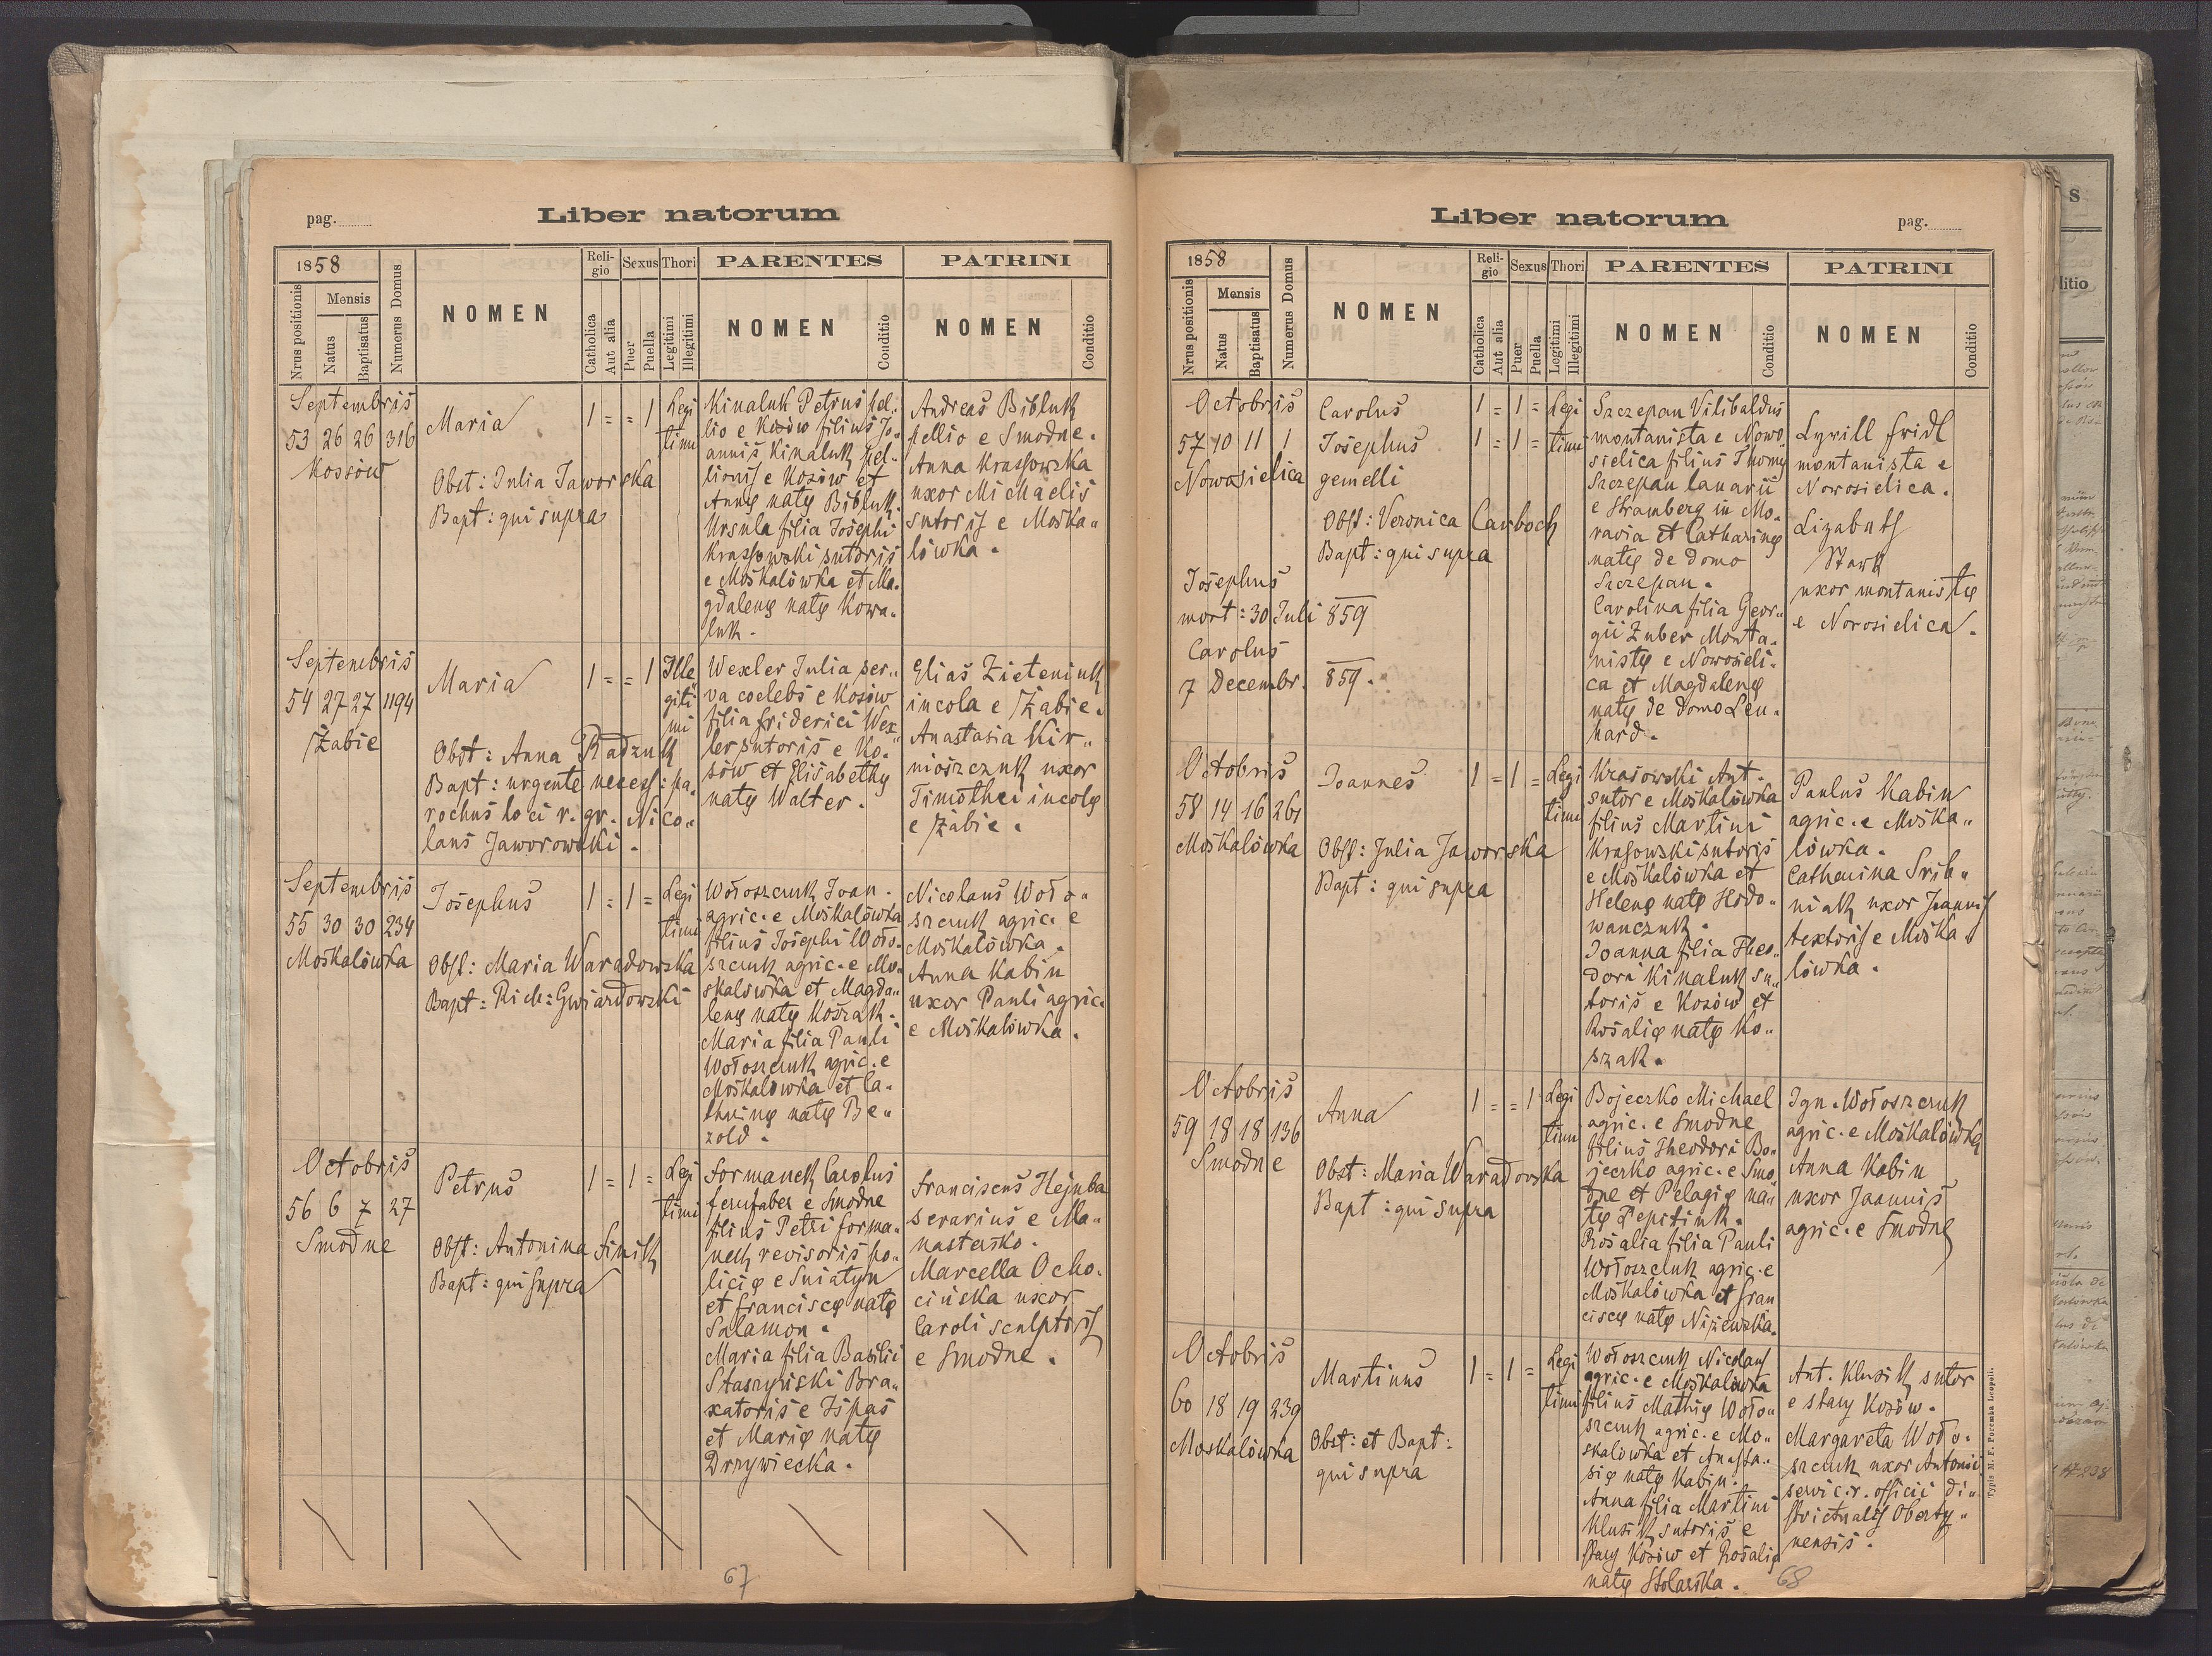 pag.
Liber natorum
1858
Nrus positionis
Mensis
Natus
Baptisatus
Numerus Domus
NOMEN
Religio
Catholica
Aut alia
Sexus
Puer
Puella
Thori
Legitimi
Illegitimi
PARENTES
NOMEN
Conditio
PATRINI
NOMEN
Conditio
Septembris
53 26 26 316
Kossów
Maria
Obst: Julia Jaworska
Bapt: qui supra
1 = = 1
Legi
timi
Kinaluk Petrus pel„
lio e Kosów filius Jo„
annis Kinaluk pel„
lionis e Kosów et
Annę natę Bibluk.
Ursula filia Josephi
Krassowski sutoris
e Moskalówka et Ma„
gdalenę natę Kowa„
luk.
Andreas Bibluk
pellio e Smodne.
Anna Krassowska
uxor Michaelis
sutoris e Moska„
lówka.
Septembris
54 27 27 1194
Żabie
Maria
Obst: Anna Radzuk
Bapt: urgente necess: pa„
rochus loci r. gr. Nico„
laus Jaworowski.
1 = = 1
Ille
giti
mi
Wexler Julia ser„
va coelebs e Kosów
filia Friderici Wex„
ler sutoris e Ko„
sów et Elisabethę
natę Walter.
Elias Zieteniuk
incola e Żabie.
Anastasia Kir„
nioszczuk uxor
Timothei incolę
e Żabie.
Septembris
55 30 30 234
Moskalówka
Josephus
Obst: Maria Waradowska
Bapt: Rich: Gwiazdowski
1 = 1 =
Legi
timi
Wołoszczuk Joan.
agric. e Moskalówka
filius Josephi Woło„
szczuk agric. e Mo„
skalówka et Magda„
lenę natę Koszak.
Maria filia Pauli
Wołoszczuk agric. e
Moskalówka et Ca„
thrinę natę Be„
zold.
Nicolaus Woło„
szczuk agric. e
Moskalówka.
Anna Kabin
uxor Pauli agric.
e Moskalówka.
Octobris
56 6 7 27
Smodne
Petrus
Obst: Antonina Finik
Bapt: qui supra
1 = 1 =
Legi
timi
Formanek Carolus
ferrifaber e Smodne
filius Petri Forma„
nek revisoris po„
licię e Sniatyn
et Franciscę natę
Salamon.
Maria filia Basilii
Staszyński Bra„
xatoris e Ispas
et Marię natę
Drzywiecka.
Franciscus Hejnba
serarius e Ma„
nastersko.
Marcella Ocho„
cińska uxor
Caroli sculptoris
e Smodne.
67
Liber natorum
pag.
1858
Nrus positionis
Mensis
Natus
Baptisatus
Numerus Domus
NOMEN
Religio
Catholica
Aut alia
Sexus
Puer
Puella
Thori
Legitimi
Illegitimi
PARENTES
NOMEN
Conditio
PATRINI
NOMEN
Conditio
Octobris
57 10 11 1
Nowosielica
Carolus
Josephus
gemelli
Obst: Veronica Carboch
Bapt: qui supra
Josephus
mort: 30 Juli 859
Carolus
7 Decembr. 859.
1 = 1 =
1 = 1 =
Legi
timi
Szczepan Vilibaldus
montanista e Nowo„
sielica filius Thomę
Szczepan lanarii
e Stramberg in Mo„
ravia et Catharinę
natę de domo
Szczepan.
Carolina filia Geor„
gii Zuber Monta„
nistę e Nowosieli„
ca et Magdalenę
natę de domo Leu„
hard.
Cyrill Fridl
montanista e
Nowosielica.
Lizabath
Stark
uxor montanistę
e Nowosielica.
Octobris
58 14 16 261
Moskalówka
Joannes
Obst: Julia Jaworska
Bapt: qui supra
1 = 1 =
Legi
timi
Krasowski Ant.
sutor e Moskalówka
filius Martini
Krasowski sutoris
e Moskalówka et
Helenę natę Hodo„
wanczuk.
Joanna filia Theo„
dori Kinaluk su„
toris e Kosów et
Rosalię natę Ko„
szak.
Paulus Kabin
agric. e Moska„
lówka.
Catharina Srib„
niak uxor Joannis
textoris e Moska„
lówka.
Octobris
59 18 18 136
Smodne
Anna
Obst: Maria Waradowska
Bapt: qui supra
1 = = 1
Legi
timi
Bojeczko Michael
agric. e Smodne
filius Theodori Bo„
jeczko agric. e Smo„
dne et Pelagię na„
tę Lepitiuk.
Rosalia filia Pauli
Wołoszczuk agric. e
Moskalówka et Fran
ciscę natę Niżewska.
Ign. Wołoszczuk
agric. e Moskalówka
Anna Kabin
uxor Joannis
agric. e Smodne
Octobris
60 18 19 239
Moskalówka
Martinus
Obst: et Bapt:
qui supra
1 = 1 =
Legi
timi
Wołoszczuk Nicolaus
agric. e Moskalówka
filius Mathię Woło„
szczuk agric. e Mo„
skalówka et Anasta„
się natę Kabin.
Anna filia Martini
Klusik sutoris e
stary Kosów et Rosalię
natę Stolarska.
Ant. Klusik sutor
e stary Kosów.
Margareta Woło„
szczuk uxor Antonii
servi c. r. officii di„
strictualis Oberty„
nensis.
Typis M. F. Poremba Leopoli.
68